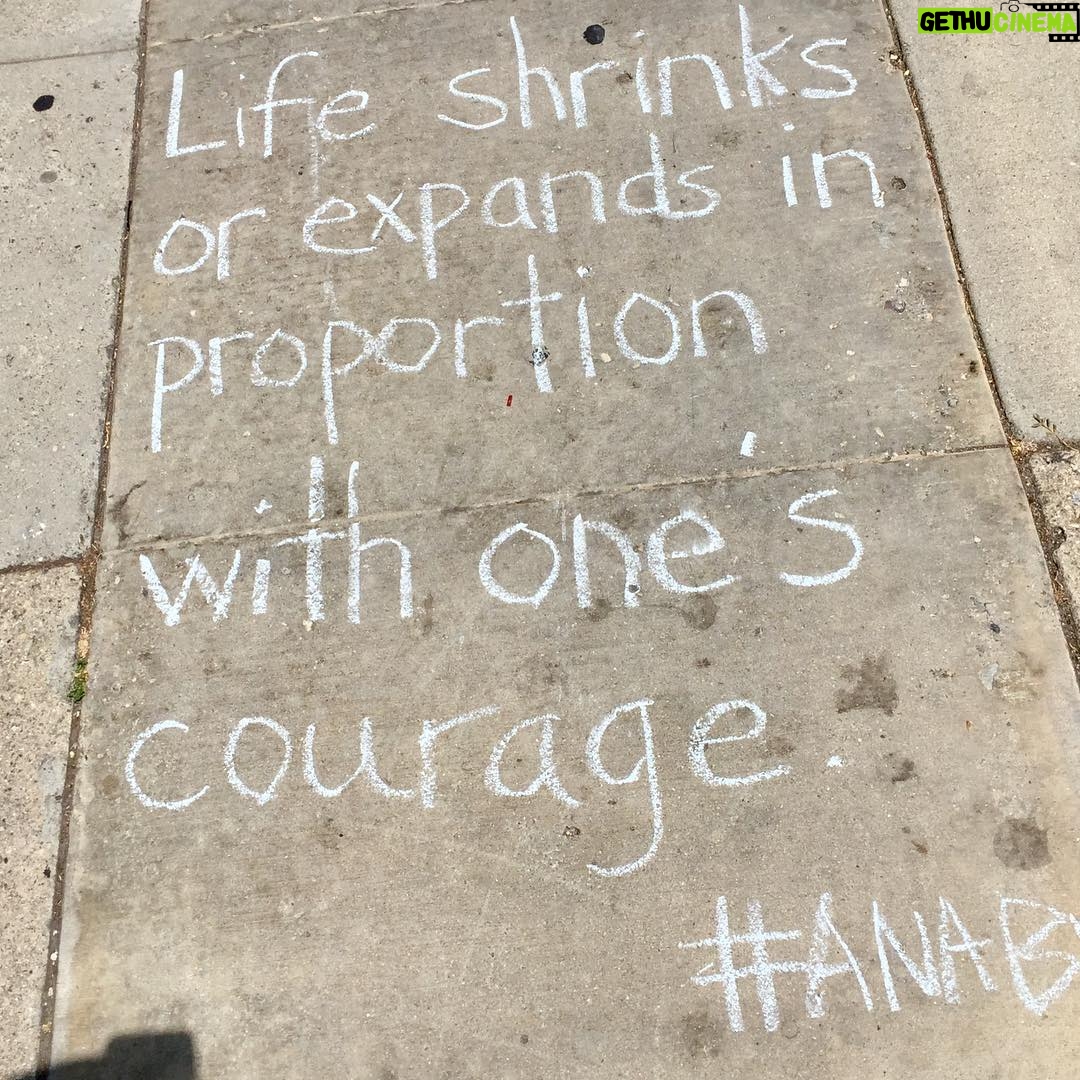 GETHUCINEMA
Life shrinks
or expands in
proportion
with one's
courage.
#ANAB